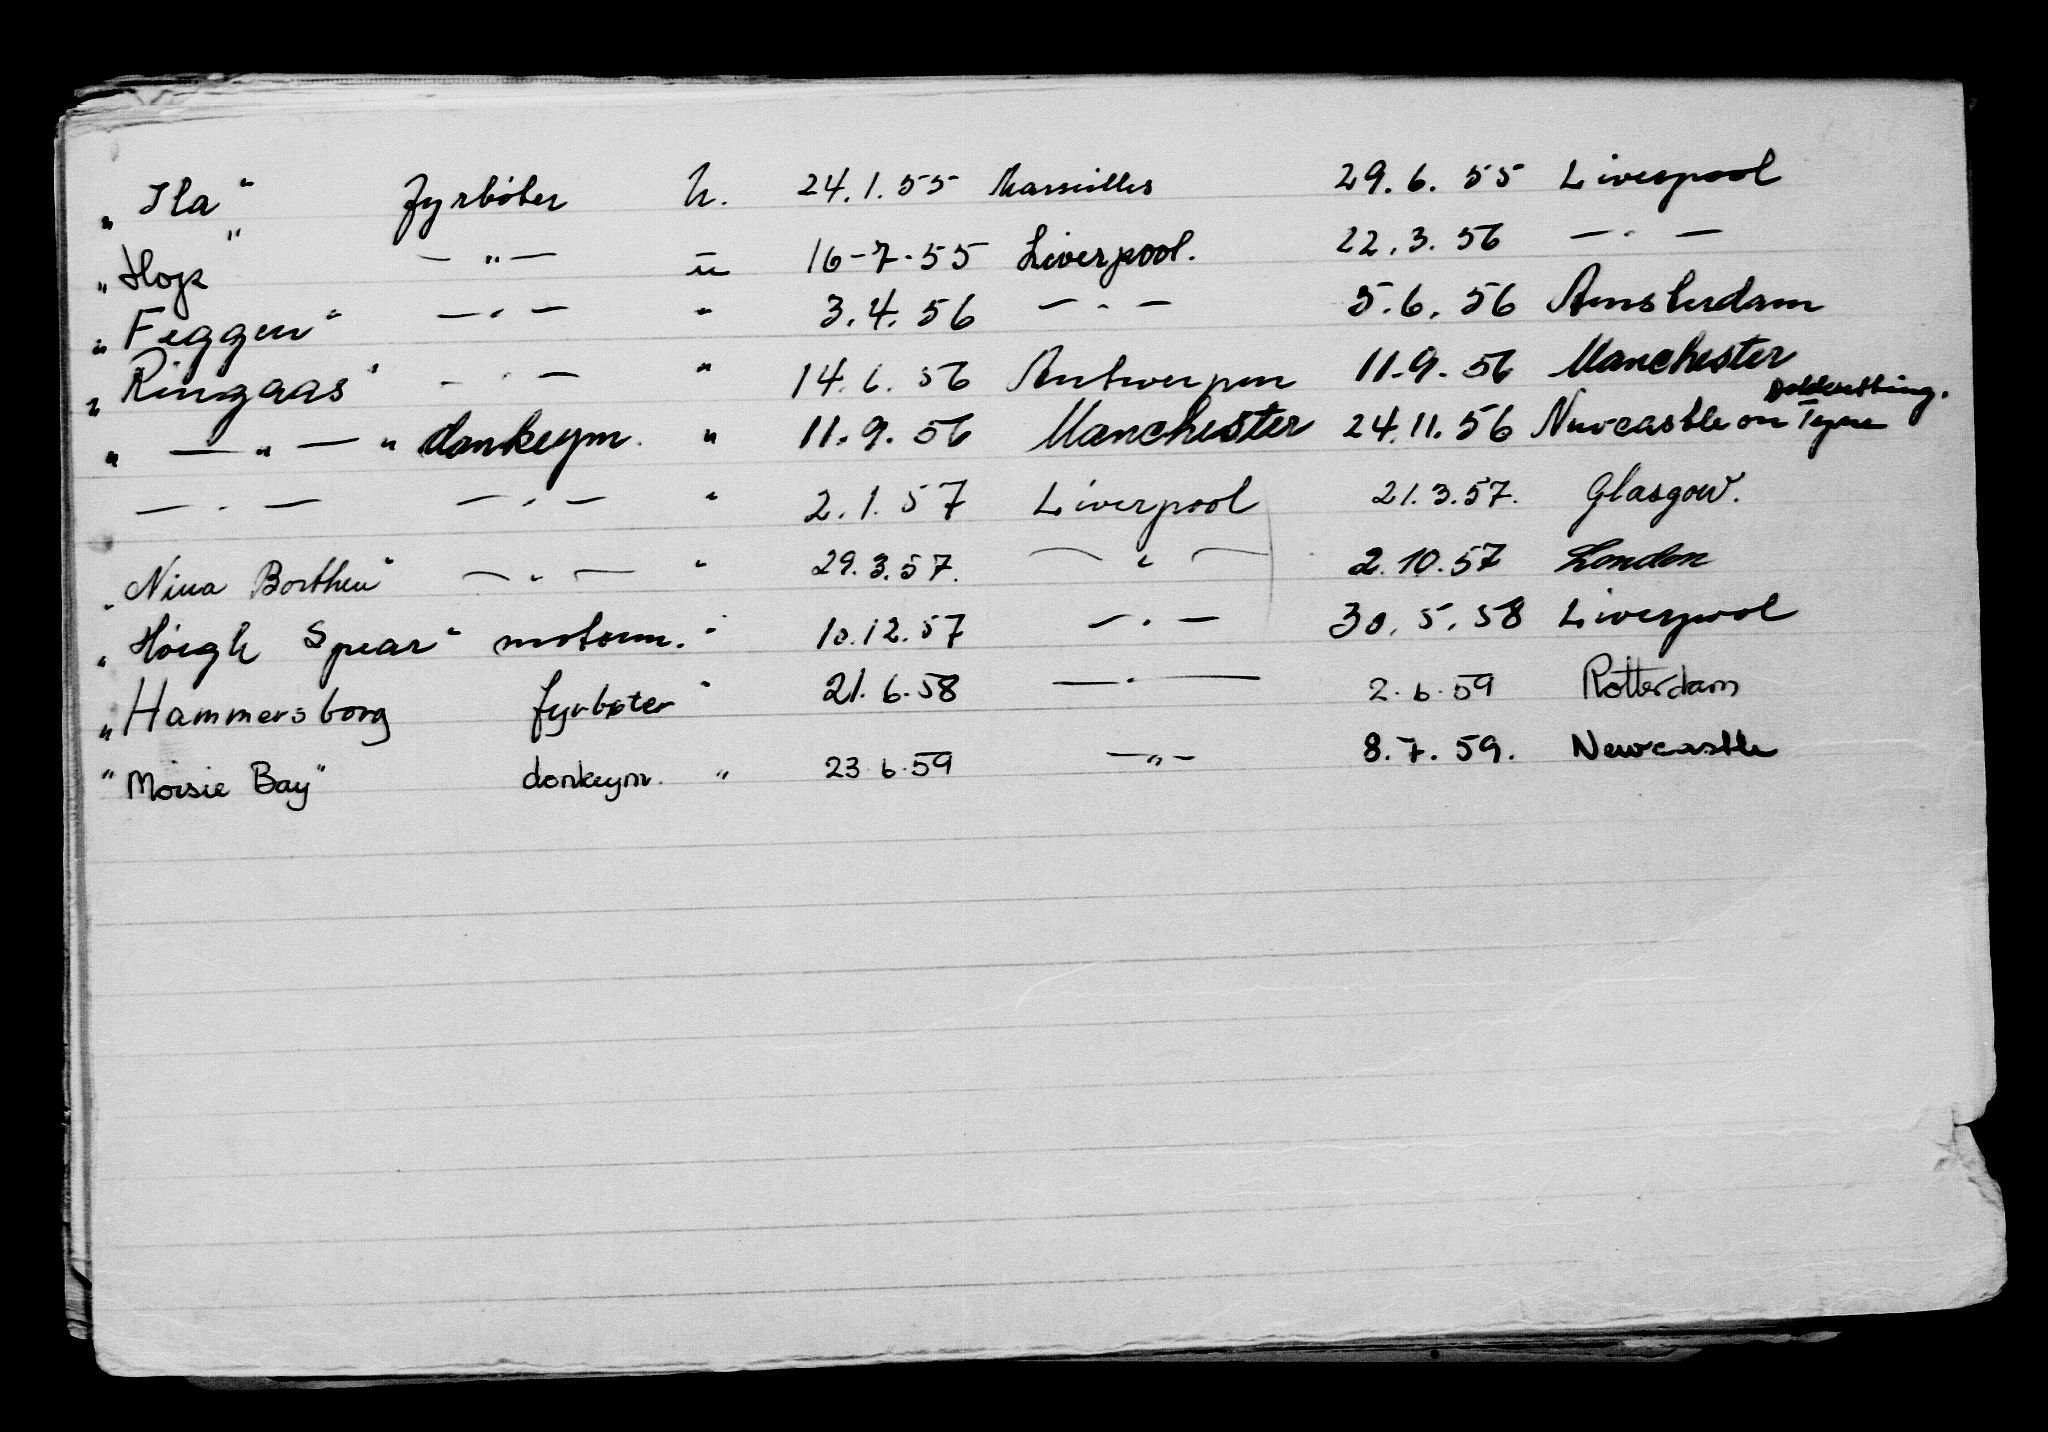 „Ila" fyrbøter U. 24.1.55 Marseilles 29.6.55 Liverpool
„Hop" — " — u 16-7-55 Liverpool. 22.3.56 — " —
„Feggen" — " — " 3.4.56 — " — 5.6.56 Amsterdam
„Ringaas" — " — " 14.6.56 Antwerpen 11.9.56 Manchester
" — " — " donkeym. " 11.9.56 Manchester 24.11.56 Newcastle on Tyne
— " — — " — " 2.1.57 Liverpool 21.3.57. Glasgow.
„Nina Borthen" — " — " 29.3.57. — " — 2.10.57 London
„Höegh Spear" motorm. " 10.12.57 — " — 30.5.58 Liverpool
„Hammersborg fyrbøter " 21.6.58 — " — 2.6.59 Rotterdam
"Moisie Bay" donkeym. " 23.6.59 — " — 8.7.59. Newcastle